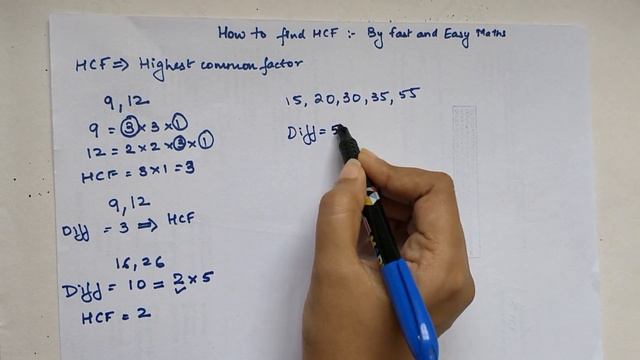 How to find HCF :- By fast and Easy Maths
HCF ⇒ Highest common factor
9, 12
9 = 3 × 3 × 1
12 = 2 × 2 × 3 × 1
HCF = 3 × 1 = 3
9, 12
Diff = 3 ⇒ HCF
16, 26
Diff = 10 = 2 × 5
HCF = 2
15, 20, 30, 35, 55
Diff = 5